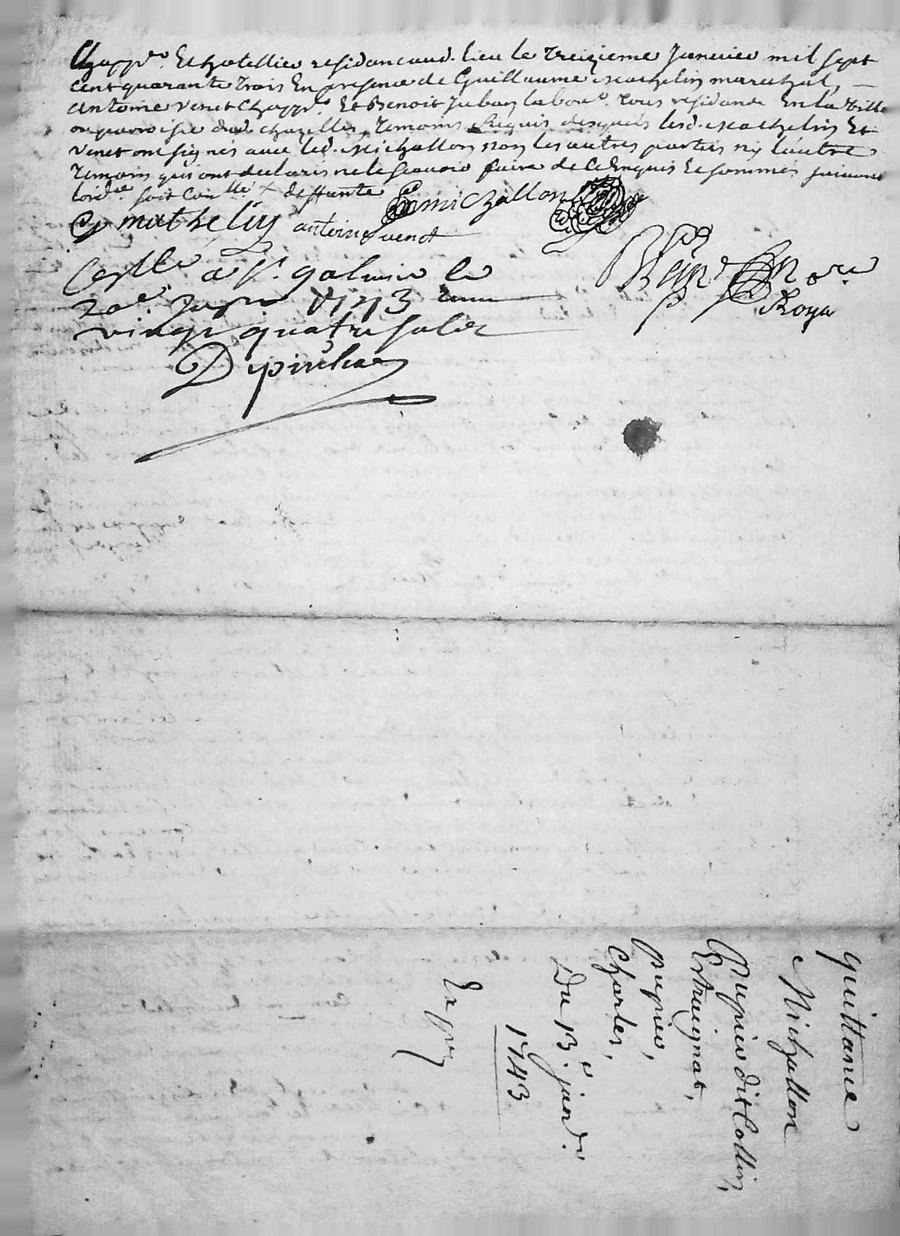 Chapp.r Et hotellier residan aud. lieu le Treizieme Janvier mil sept
cent quarante Trois En presence de Guillaume Mathelin marechal,
antoine venet Chapp.r Et Benoit Jaban labou.r Tous residans En la Ville
ou parroisse dud. chazelles, Temoins Requis desquels lesd. Mathelin Et
venet ont signés avec led. Michallon non les autres parties ny lautre
Temoin qui ont declarés ne le scavoir faire de ce Enquis Et sommés suivant
lord.ce soit Con.llé
G mathelin antoine venet michallon
Con.llé a s.t galmier le
20.e Janv.r 1743
vingt quatre sols
n.re
Royal
quittance
Michallon
Pupier dit Collin,
Et
pupier,
Charles,
Du 13.e janv.r
1743
Exp.